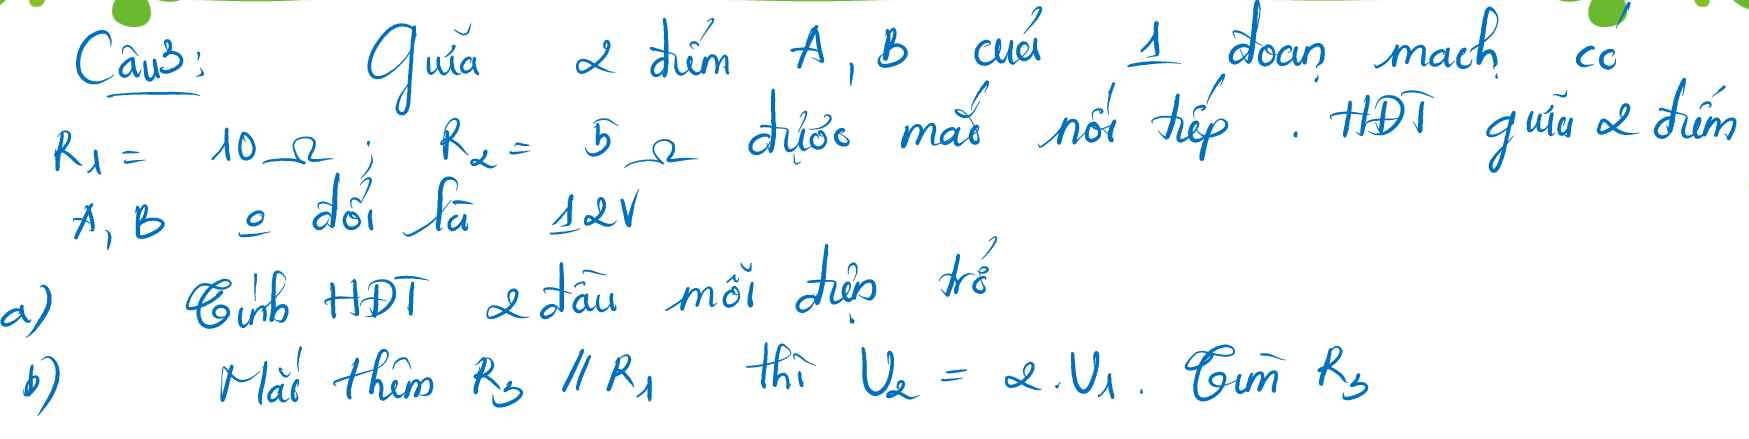 Câu 3: Giữa 2 điểm A, B của 1 đoạn mạch có
R1 = 10 Ω ; R2 = 5 Ω được mắc nối tiếp . HĐT giữa 2 điểm
A, B o đổi là 12V
a) Tính HĐT 2 đầu mỗi điện trở
b) Mắc thêm R3 // R1 thì U2 = 2.U1. Tìm R3